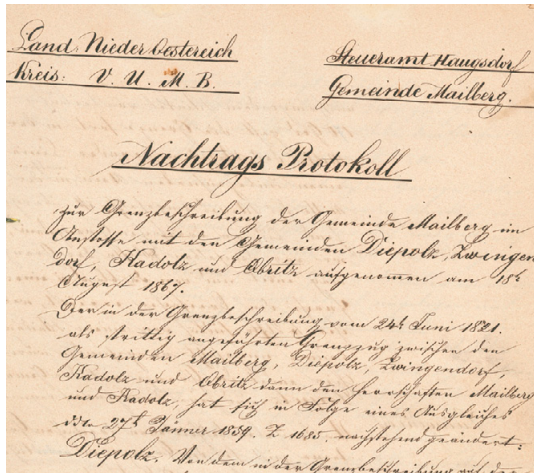 Land Nieder Oestereich
Steueramt Haugsdorf
Kreis: V. U. M. B.
Gemeinde Mailberg.
Nachtrags Protokoll
zur Grenzbeschreibung der Gemeinde Mailberg im
Anstosse mit den Gemeinden Diepolz, Zwingen
dorf, Kadolz und Obritz aufgenommen am 18t
August 1867.
Der in der Grenzbeschreibung vom 24t Juni 1821.
als strittig angeführten Grenzzug zwischen den
Gemeinden Mailberg, Diepolz, Zwingendorf,
Kadolz und Obritz dann den Herrschaften Mailberg
und Kadolz, hat sich in Folge eines Ausgleiches
ddto 27t Jänner 1859. Z 1685. nachstehend geändert:
Diepolz. Von dem in der Grenzbeschreibung mit der